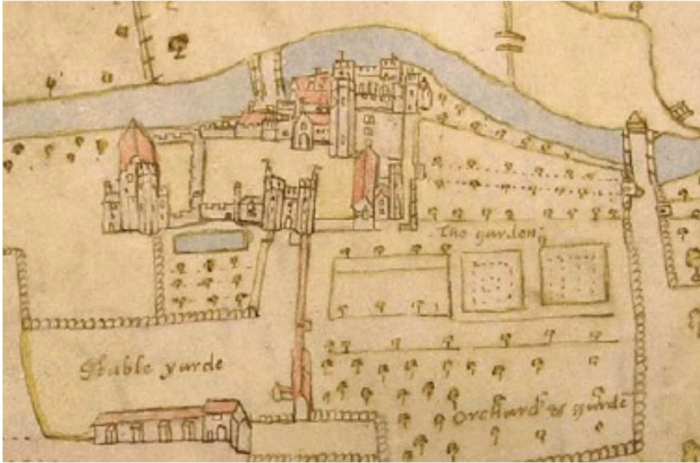 The garden
Stable yarde
Orchard & yarde